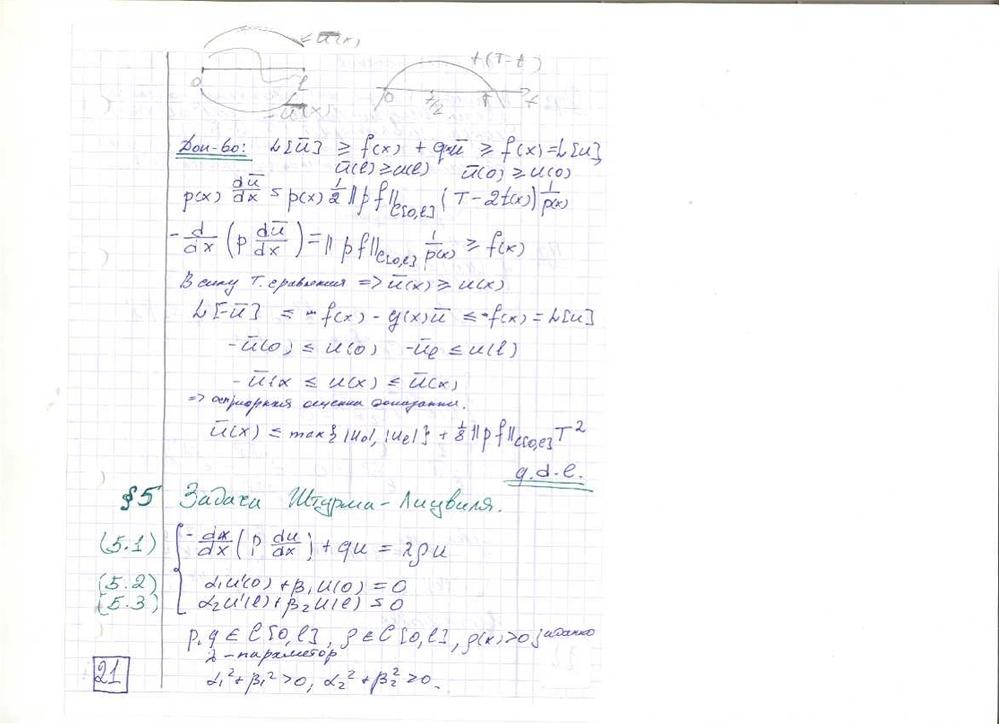 = ū(x)
0 l
-ū(x)
t(T-t)
0 T/2 T t
Док-во: L[ū] ≥ f(x) + qū ≥ f(x) = L[u]
ū(l) ≥ u(l) ū(0) ≥ u(0)
p(x) dū/dx = p(x) 1/2 ||pf||_{C[0,l]} (T - 2t(x)) 1/p(x)
-d/dx (p dū/dx) = ||pf||_{C[0,l]} 1/p(x) ≥ f(x)
В силу т. сравнения => ū(x) ≥ u(x)
L[-ū] ≤ -f(x) - q(x)ū ≤ -f(x) = L[u]
-ū(0) ≤ u(0) -ū_l ≤ u(l)
-ū(x ≤ u(x) ≤ ū(x)
=> априорная оценка доказана.
ū(x) ≤ max{|u_0|, |u_l|} + 1/8 ||pf||_{C[0,l]} T²
q.d.e.
§5 Задача Штурма-Лиувиля.
(5.1) { -d/dx (p du/dx) + qu = λρu
(5.2) α₁u'(0) + β₁u(0) = 0
(5.3) α₂u'(l) + β₂u(l) = 0
p, q ∈ C[0,l], ρ ∈ C[0,l], ρ(x) > 0 } задано
λ - параметор
21
α₁² + β₁² > 0, α₂² + β₂² > 0.